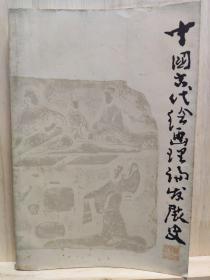 中國古代绘画理论发展史